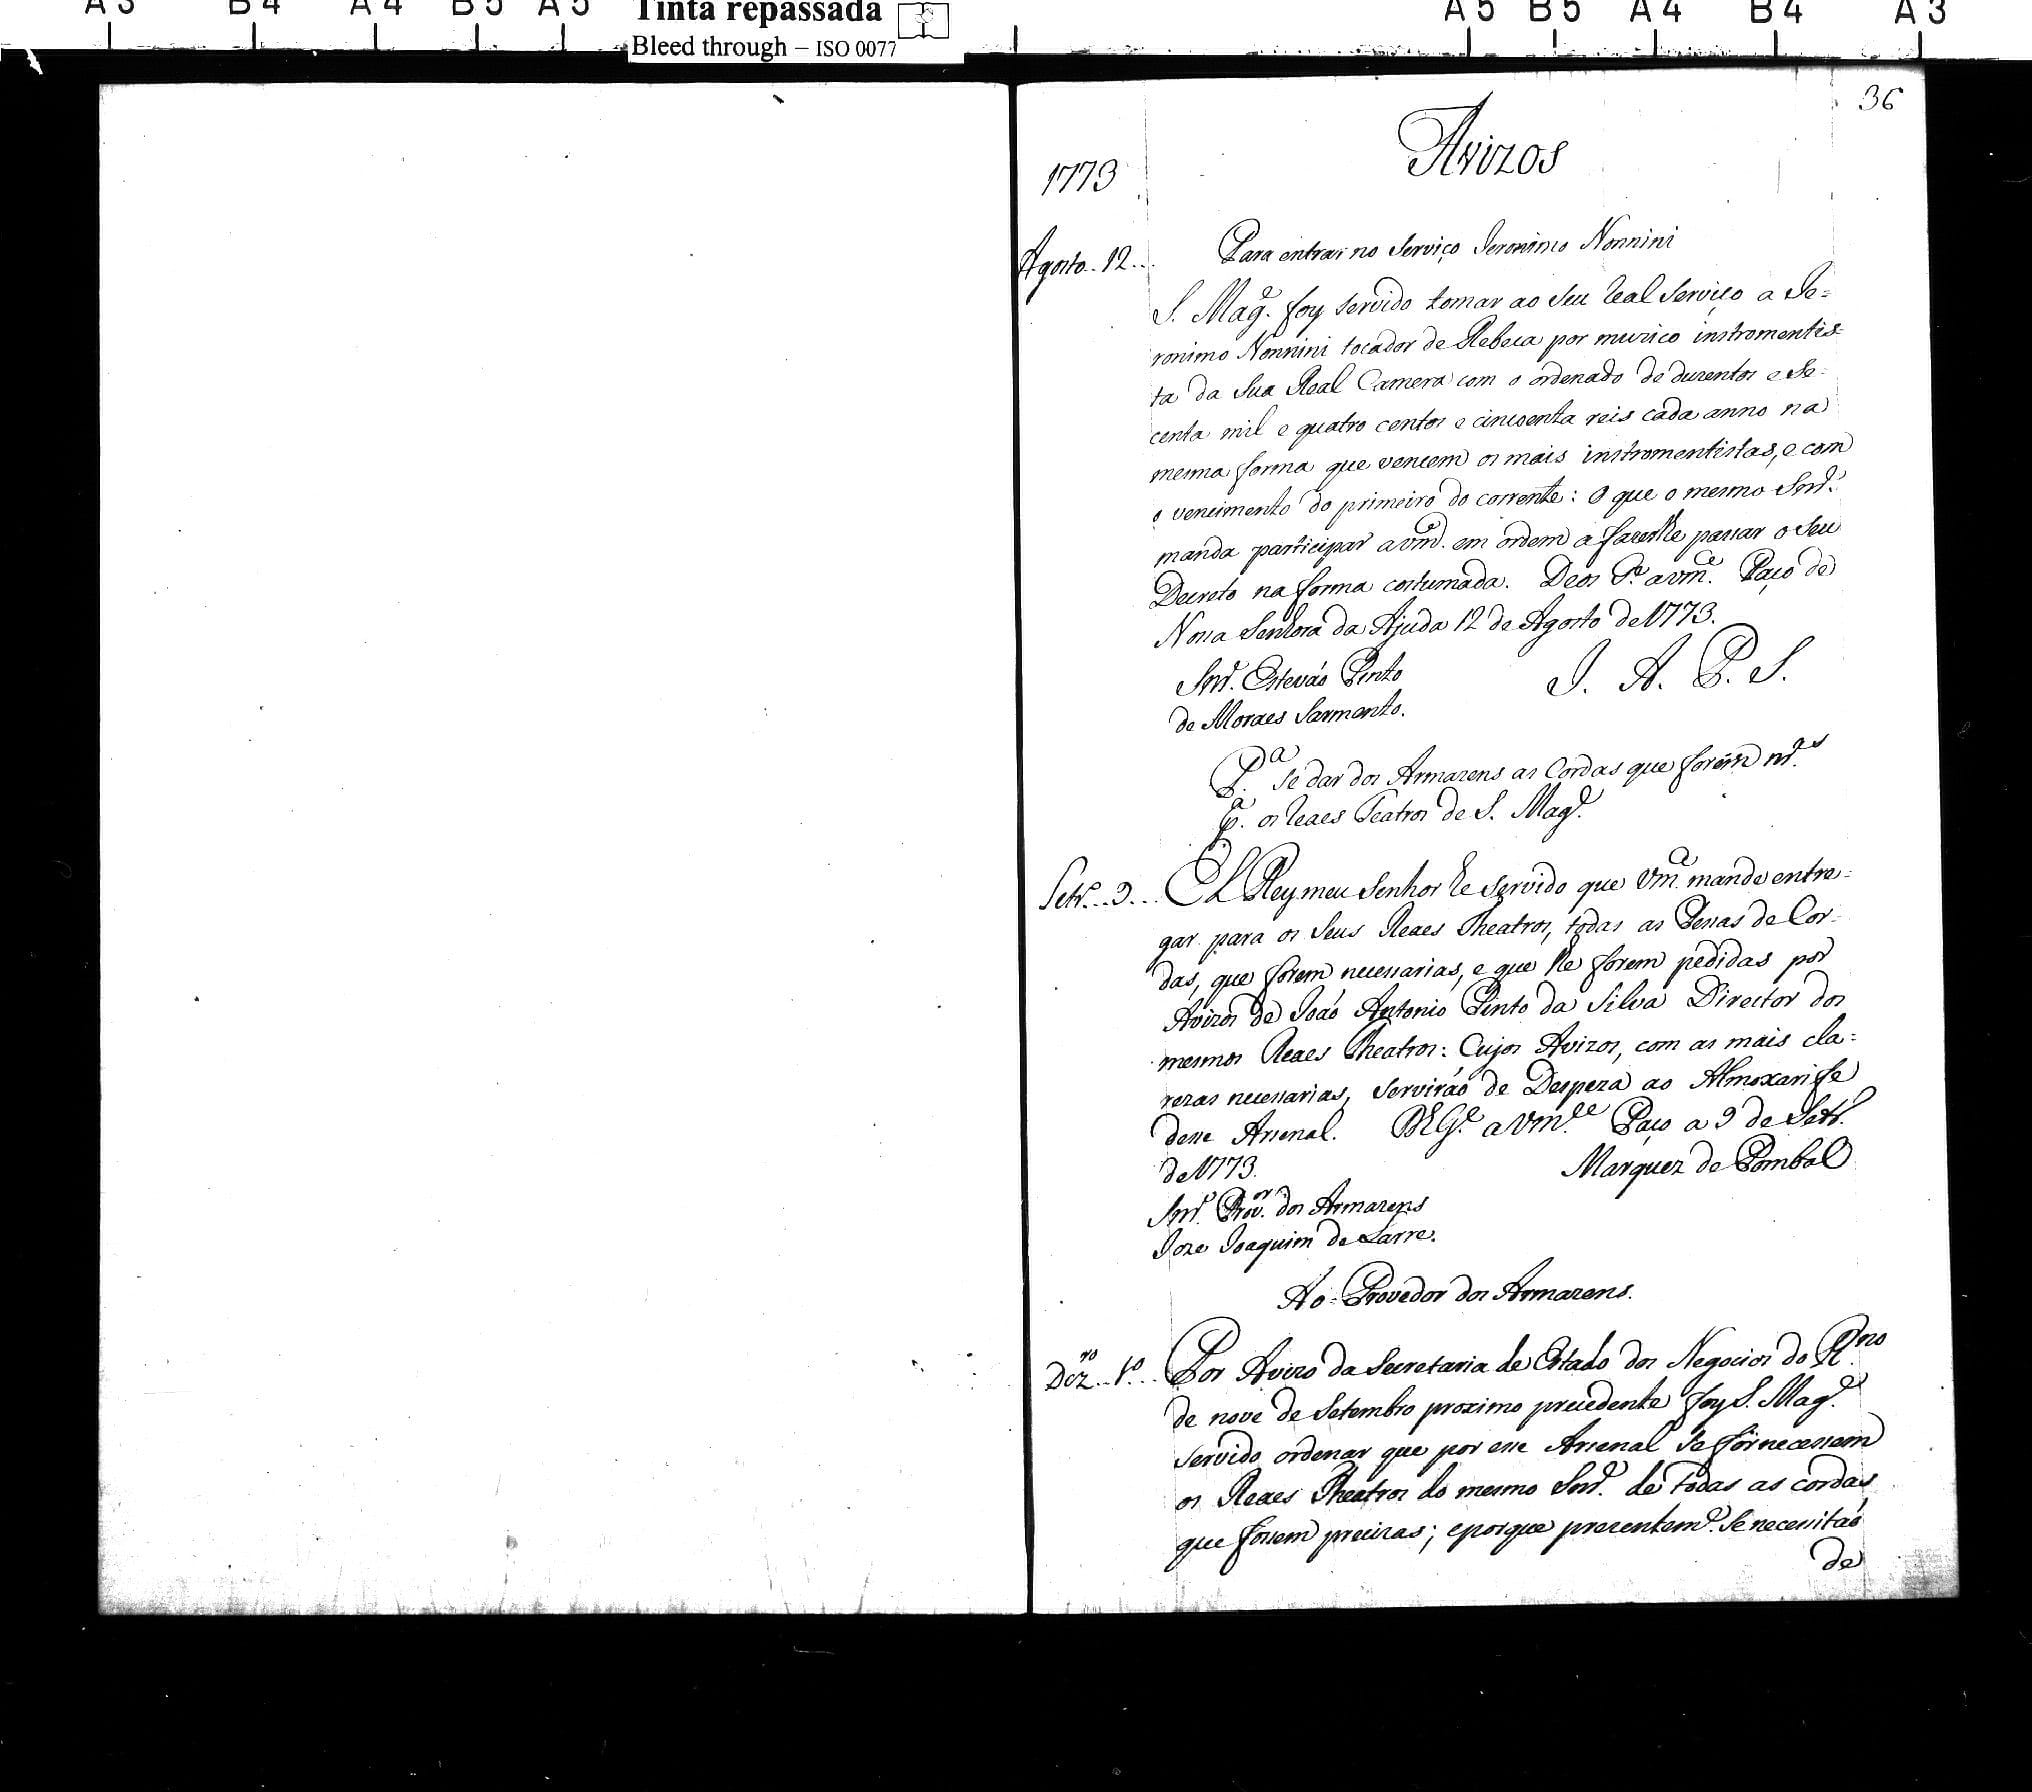 A3 B4 A4 B5 A5 A5 B5 A4 B4 A3
Tinta repassada
Bleed through – ISO 0077
36
Avizos
1773
Agosto.. 12... Para entrar no Serviço Jeronimo Nonnini
S. Magᵉ. foy servido tomar ao seu Real Serviço a Je=
ronimo Nonnini tocador de Rebeca por muzico instromentis=
ta da Sua Real Camera com o ordenado de duzentos e se=
centa mil e quatro centos e cincoenta reis cada anno na
mesma forma que vencem os mais instromentistas, e com
o vencimento do primeiro do corrente: O que o mesmo Snr̃.
manda participar a vm̃. em ordem a fazerlhe passar o seu
Decreto na forma costumada. Deos Gᵉ. a vmᵉ. Paço de
Nossa Senhora da Ajuda 12 de Agosto de 1773.
Snr̃. Estevão Pinto J. A. P. S.
de Moraes Sarmento.
P.ᵃ se dar dos Armazens as Cordas que forem nr.ᵃˢ
p.ᵃ os Reaes Teatros de S. Magᵉ.
Setr̃... 9... El Rey meu Senhor he servido que Vmᵉ. mande entre=
gar para os Seus Reaes Theatros, todas as Pessas de Cor=
das, que forem necessarias, e que lhe forem pedidas por
Avizos de João Antonio Pinto da Silva Director dos
mesmos Reaes Theatros: Cujos Avizos, com as mais cla=
rezas necessarias, servirão de Despeza ao Almoxarife
desse Arsenal. Ds. Gᵉ. a Vm.ᶜᵉ Paço a 9 de Setr̃.
de 1773. Marquez de Pombal
Snr̃. Prov.ᵒʳ dos Armazens
Joze Joaquim de Larre.
Ao Provedor dos Armazens.
Dez.ʳᵒ 1.º... Por Avizo da Secretaria de Estado dos Negocios do R.ⁿᵒ
de nove de Setembro proximo precedente foy S. Magᵉ.
servido ordenar que por esse Arsenal se fornecessem
os Reaes Theatros do mesmo Snr̃. de todas as cordas
que fossem precizas; e porque prezentemᵉ. se necessitão
de